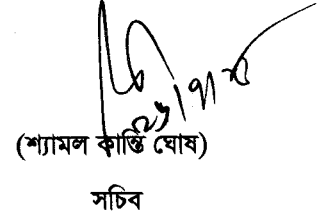 (শ্যামল কান্তি ঘোষ)
সচিব